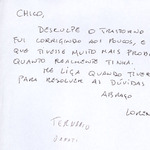 CHICO,
DESCULPE O TRASTORNO
FUI CORRIGINDO AOS POUCOS, E
QUE TIVESSE MUITO MAIS PROB
QUANTO REALMENTE TINHA.
ME LIGA QUANDO TIVER
PARA RESOLVER AS DÚVIDAS
ABRAÇO
LOREN